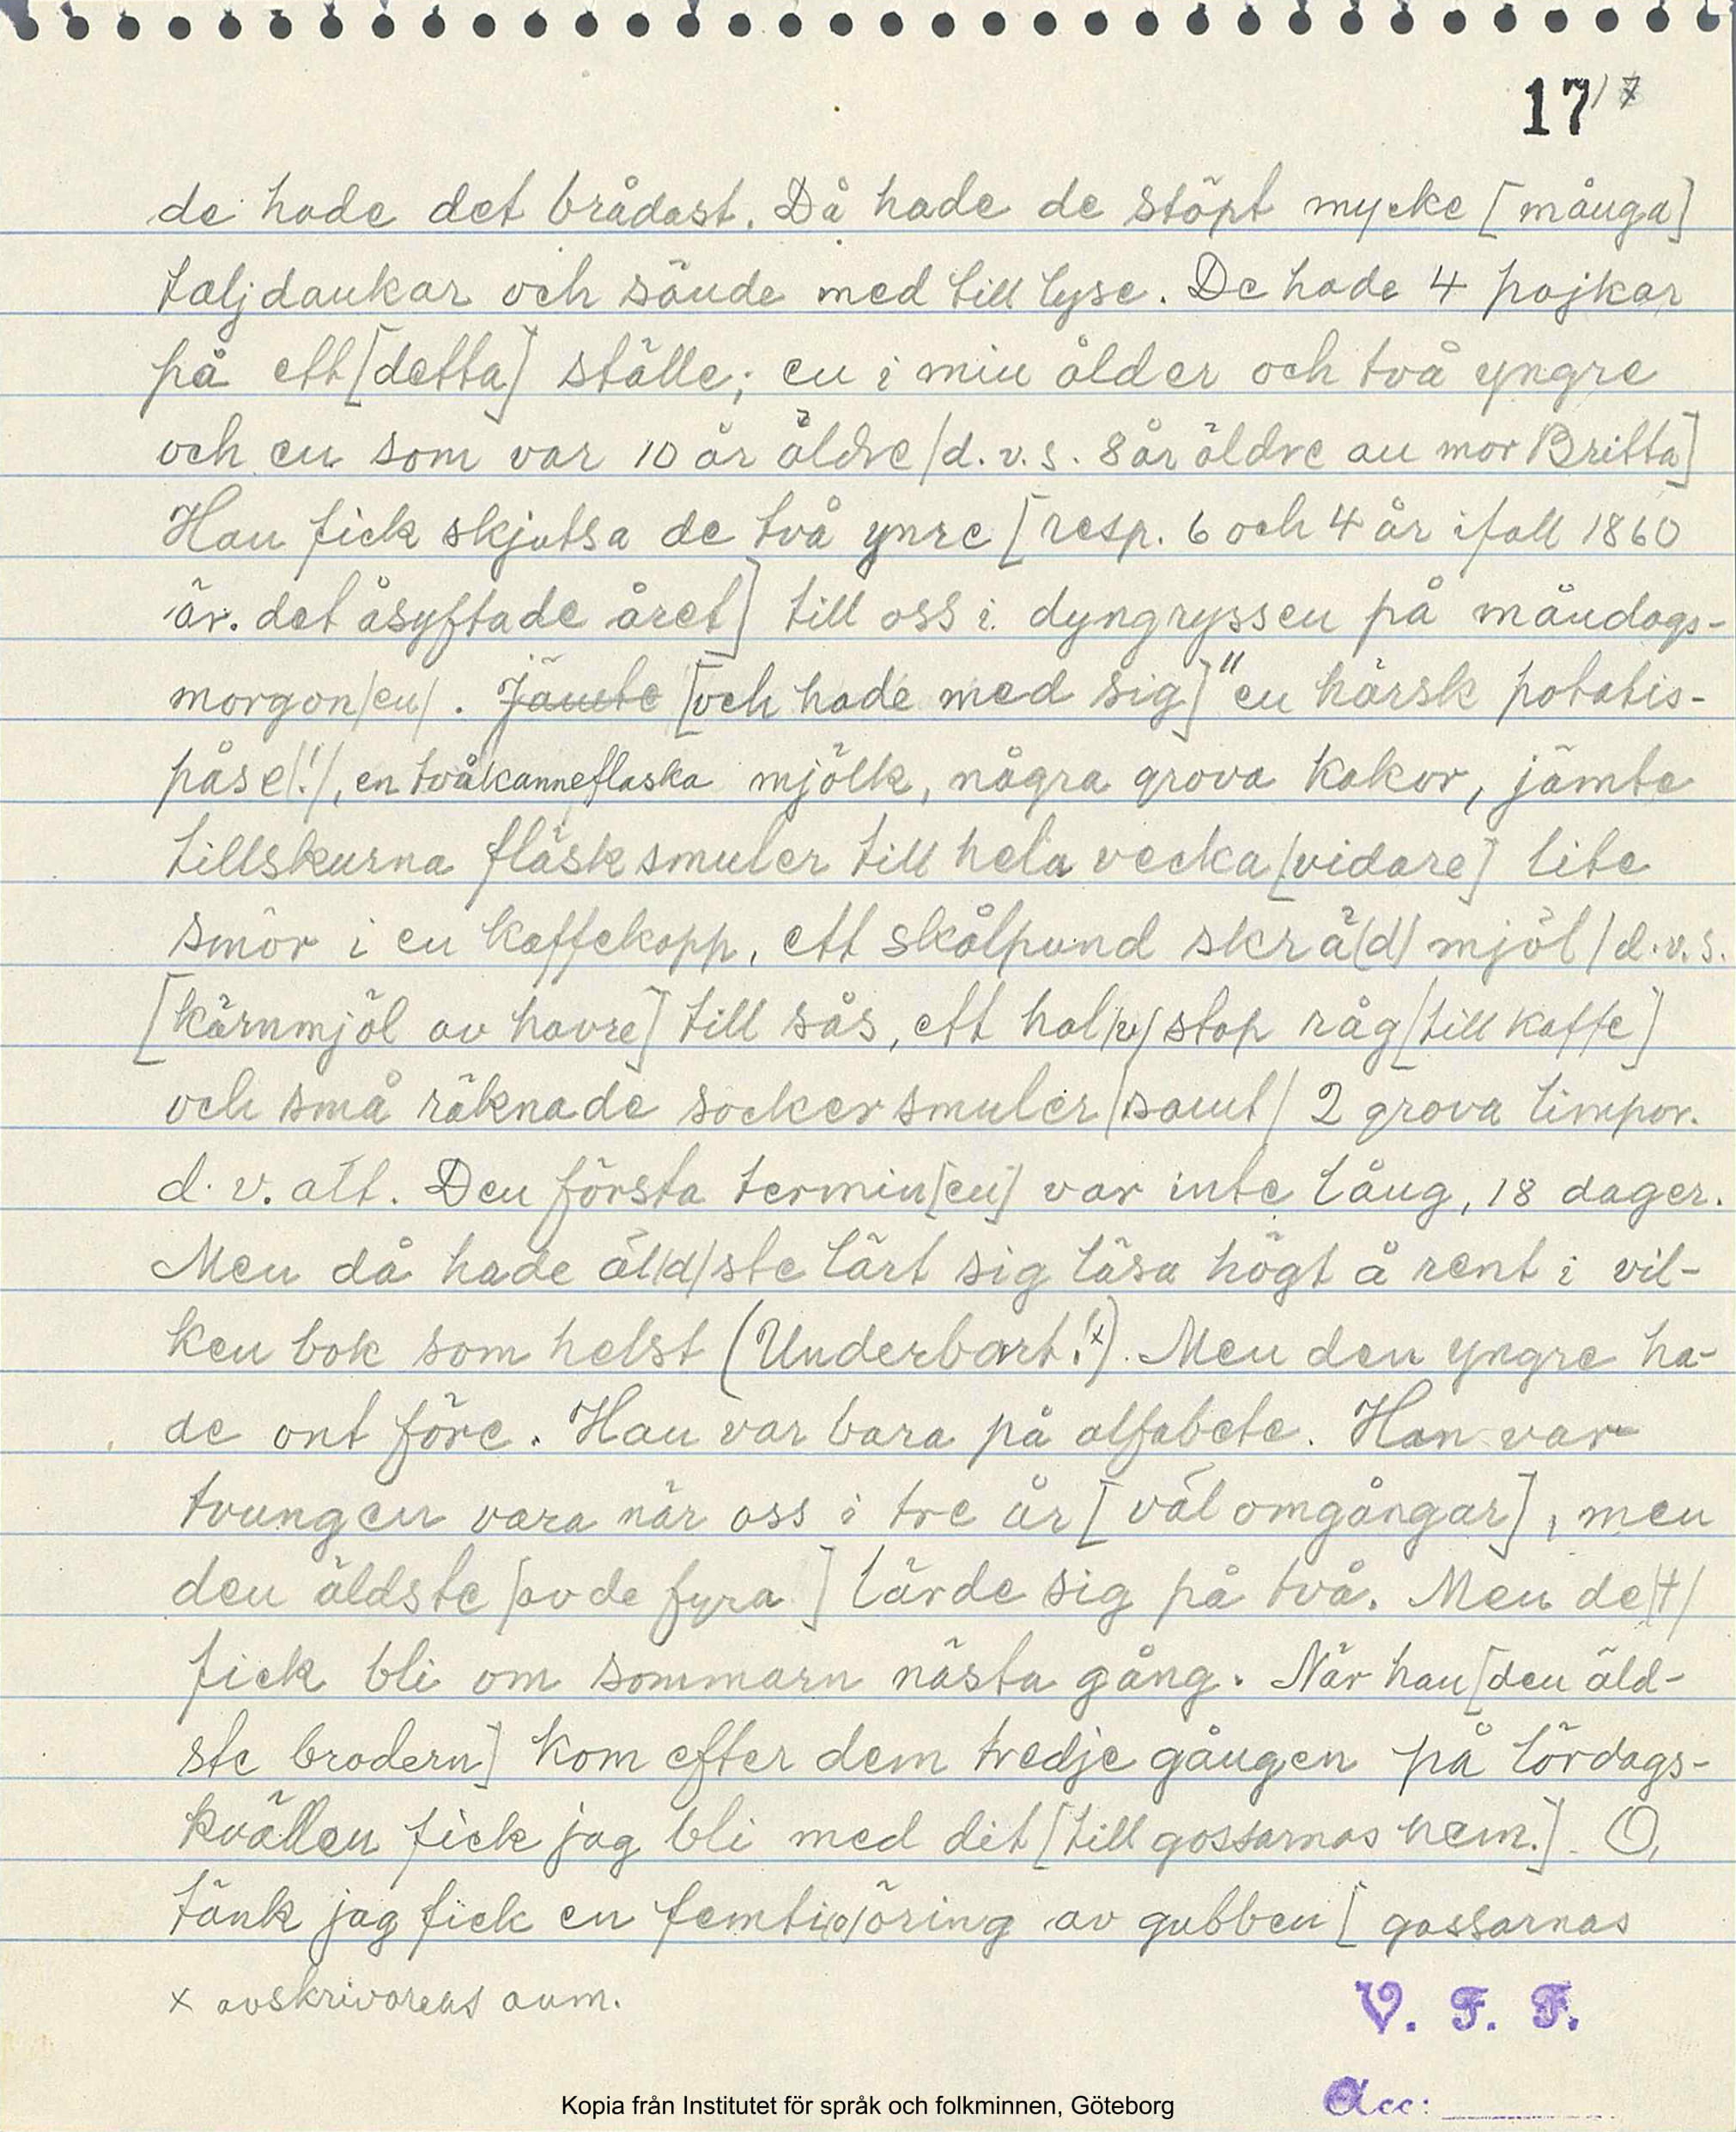 17 17
de hade det brådast. Då hade de stöpt mycke [många]
taljdankar och sände med till lyse. De hade 4 pojkar
på ett [detta] ställe; en i min ålder och två yngre
och en som var 10 år äldre /d.v.s. 8 år äldre än mor Britta]
Han fick skjutsa de två ynre [resp. 6 och 4 år ifall 1860
är. det åsyftade året] till oss i dyngryssen på måndags-
morgon/en/. Jämte [och hade med sig] "en härsk potatis-
påse(!/, en tvåkanneflaska mjölk, några grova kakor, jämte
tillskurna fläsksmuler till hela vecka [vidare] lite
smör i en kaffekopp, ett skålpund skrä(d/ mjöl /d.v.s.
[kärnmjöl av havre] till sås, ett hal/v/ stop råg [till kaffe]
och små räknade sockersmuler /samt/ 2 grova limpor.
d.v. allt. Den första termin[en] var inte lång, 18 dager.
Men då hade äl/d/ste lärt sig läsa högt å rent i vil-
ken bok som helst (Underbart! x). Men den yngre ha-
de ont före. Han var bara på alfabete. Han var
tvungen vara när oss i tre år [väl omgångar], men
den äldste [av de fyra] lärde sig på två. Men de/t/
fick bli om sommarn nästa gång. När han [den äld-
ste brodern] kom efter dem tredje gången på lördags-
kvällen fick jag bli med dit [till gossarnas hem.]. O,
tänk jag fick en femti/o/öring av gubben [gossarnas
x avskrivarens anm.
V. F. F.
Acc:
Kopia från Institutet för språk och folkminnen, Göteborg